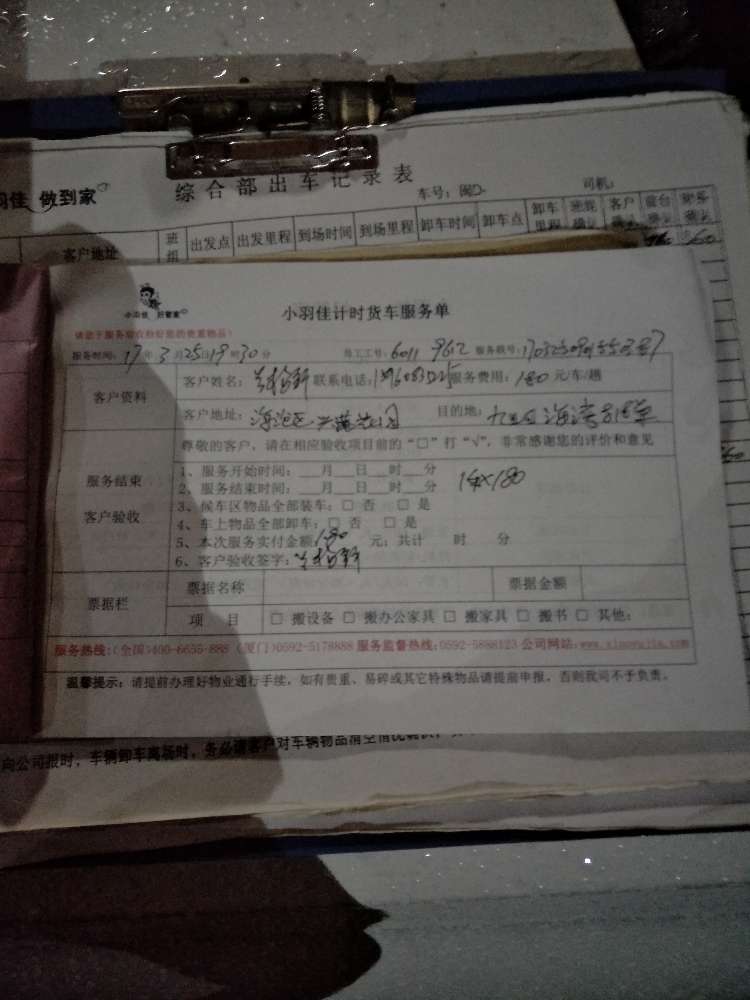 羽佳 做到家
综合部出车记录表
车号: 闽D. 司机:
客户地址 班组 出发点 出发里程 到场时间 到场里程 卸车时间 卸车点 卸车里程 客户确认 前台确认
360
小羽佳 好管家
小羽佳计时货车服务单
请您于服务前收拾好您的贵重物品!
服务时间: 17年3月25日19时30分 员工工号: 6011 962 服务账号:
客户资料
客户姓名: 联系电话: 服务费用: 180 元/车/趟
客户地址: 海沧区 目的地:
尊敬的客户,请在相应验收项目前的“□”打“√”,非常感谢您的评价和意见
服务结束
客户验收
1、服务开始时间: 月 日 时 分
2、服务结束时间: 月 日 时 分
3、候车区物品全部装车: □ 否 □ 是
4、车上物品全部卸车: □ 否 □ 是
5、本次服务实付金额: 180 元; 共计 时 分
6、客户验收签字:
票据栏
票据名称 票据金额
项 目 □ 搬设备 □ 搬办公家具 □ 搬家具 □ 搬书 □ 其他:
服务热线:(全国)400-6655-888 (厦门)0592-5178888 服务监督热线:0592-5888123 公司网站:www.xiaoyujia.com
温馨提示: 请提前办理好物业通行手续,如有贵重、易碎或其它特殊物品请提前申报,否则我司不予负责。
向公司报时,车辆卸车离场时,务必请客户对车辆物品清空情况确认,